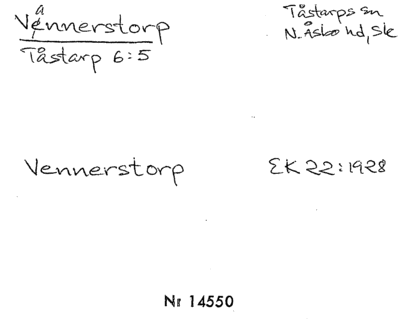 Vännerstorp
Tåstarp 6:5
Tåstarps sn
N. Åsbo hd, Sk
Vennerstorp
EK 22:1928
Nr 14550